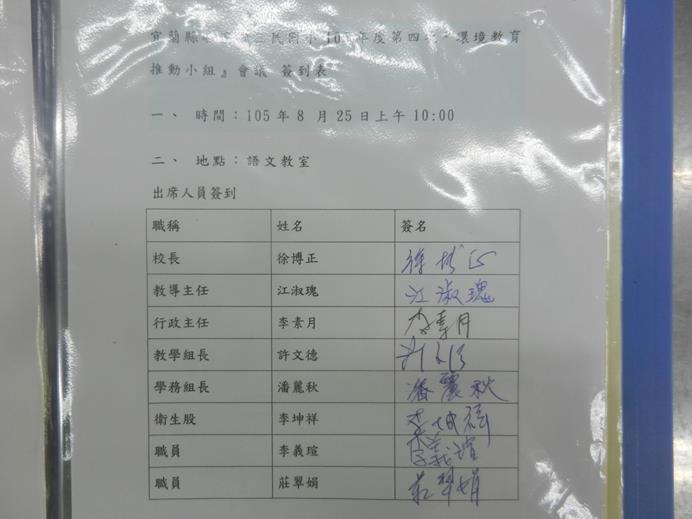 宜蘭縣 三民國小 10 年度第四 環境教育
推動小組』會議 簽到表
一、 時間：105年8月25日上午10:00
二、 地點：語文教室
出席人員簽到
職稱 姓名 簽名
校長 徐博正 徐博正
教導主任 江淑瑰 江淑瑰
行政主任 李素月 李素月
教學組長 許文德 許文德
學務組長 潘麗秋 潘麗秋
衛生股 李坤祥 李坤祥
職員 李義瑄 李義瑄
職員 莊翠娟 莊翠娟